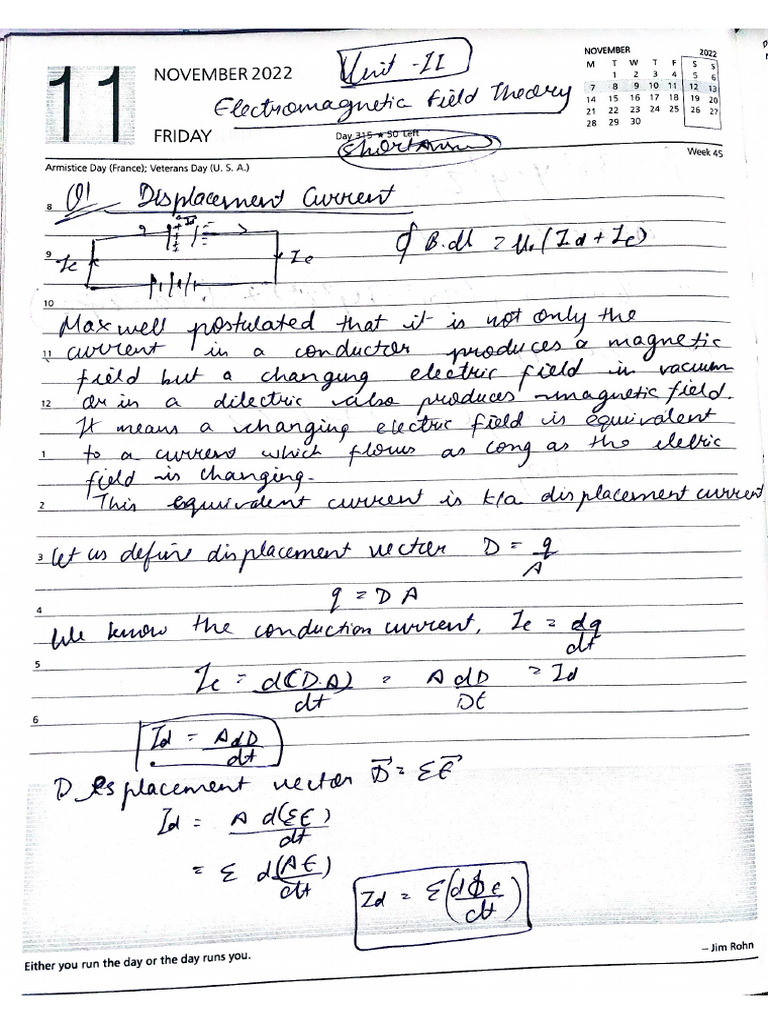 11
NOVEMBER 2022
FRIDAY
Unit - II
Electromagnetic Field Theory
Day 315 ★ 50 Left
NOVEMBER 2022
M T W T F S S
1 2 3 4 5 6
7 8 9 10 11 12 13
14 15 16 17 18 19 20
21 22 23 24 25 26 27
28 29 30
Week 45
Armistice Day (France); Veterans Day (U. S. A.)
8 Q1 Displacement Current
9 Ic Id Ic ∮ B.dl = μ₀ (Id + Ic)
10
Maxwell postulated that it is not only the
11 current in a conductor produces a magnetic
field but a changing electric field in vacuum
12 or in a dilectric also produces magnetic field.
It means a changing electric field is equivalent
1 to a current which flows as long as the eletric
field is changing.
2 This equivalent current is k/a displacement current
3 Let us define displacement vector D = q/A
4 q = D A
We know the conduction current, Ic = dq/dt
5 Ic = d(D.A)/dt = A dD/Dt = Id
6
Id = A dD/dt
Displacement vector D⃗ = εE⃗
Id = A d(εE)/dt
= ε d(AE)/dt
Id = ε(dϕe/dt)
Either you run the day or the day runs you.
– Jim Rohn